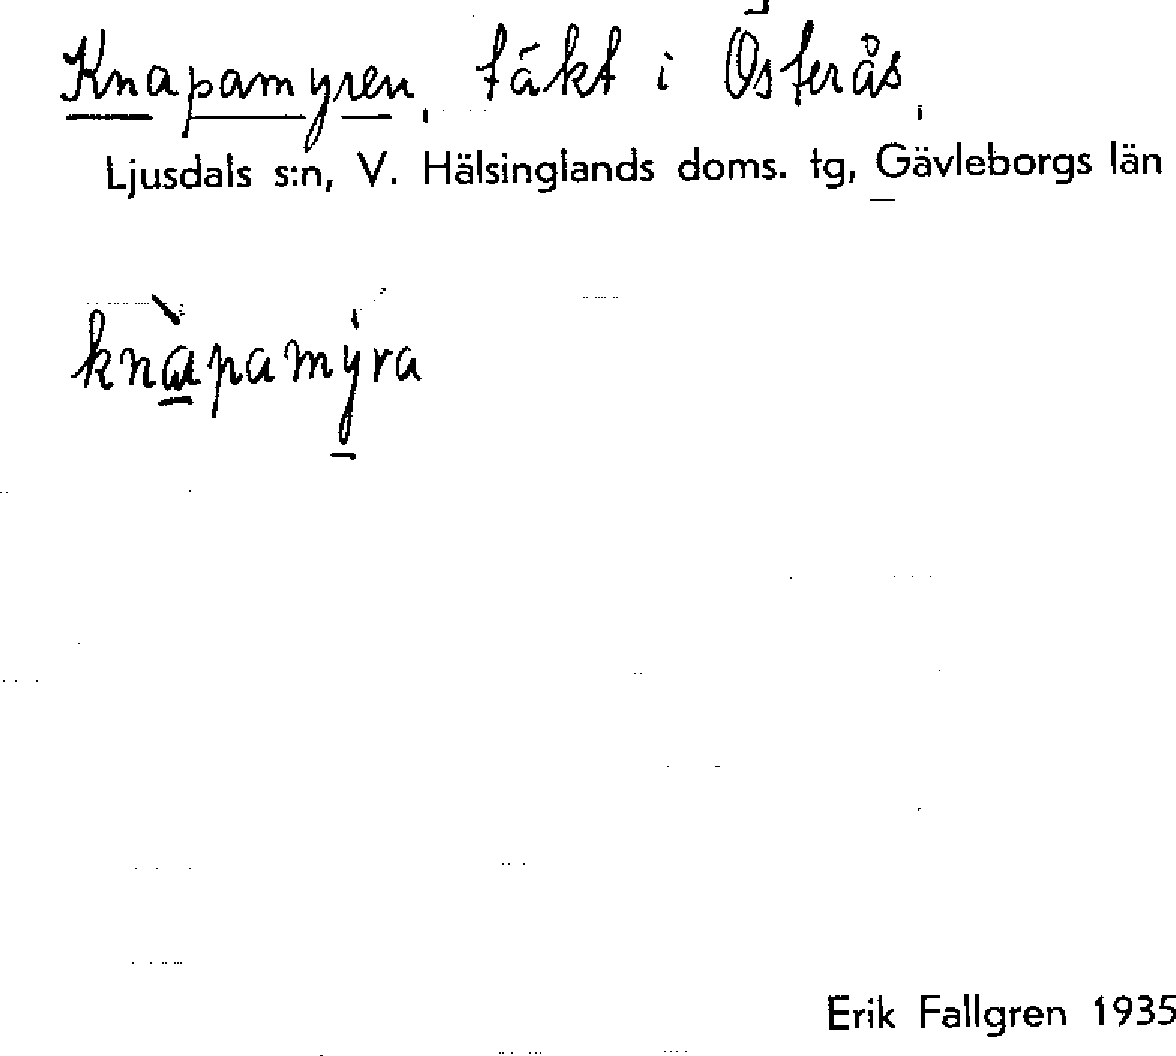 Knapamyren, täkt i Österås,
Ljusdals s:n, V. Hälsinglands doms. tg, Gävleborgs län
knàpamýra
Erik Fallgren 1935